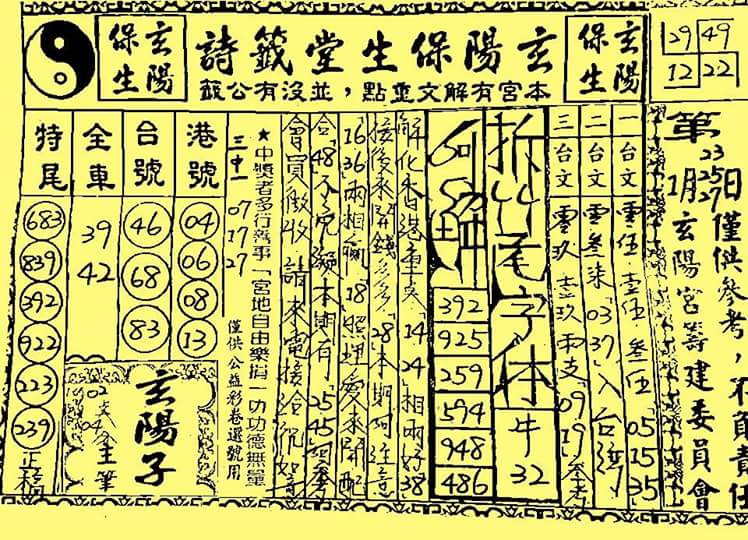 玄陽保生
玄陽保生堂籤詩
本宮有解文重點，並沒有公籤
玄陽保生
29 49
12 22
第 23 25 27 日僅供參考，不負責任
1月玄陽宮籌建委員會
一 台文 零伍 壹伍 叁伍 05 15 35
二 台文 零叁柒 03 37 入台灣
三 台文 零玖 壹玖 兩支 09 19 參考
拆 尾字体 牛 32
392
925
259
594
948
486
解化香港 14 24 相兩好 38
接後來開錢多多 28 本期阿注意
16 36 兩相贏 18 照理愛來開配
合 48 不 本期有 25 45
會員徵收 請來電接洽
★中獎者多行善事「宮地自由樂捐」功德無量
三中一 07 17 27
僅供公益彩卷選號用
港號
04
06
08
13
台號
46
68
83
全車
39
42
特尾
683
839
392
922
223
239
正稿
玄陽子
主筆